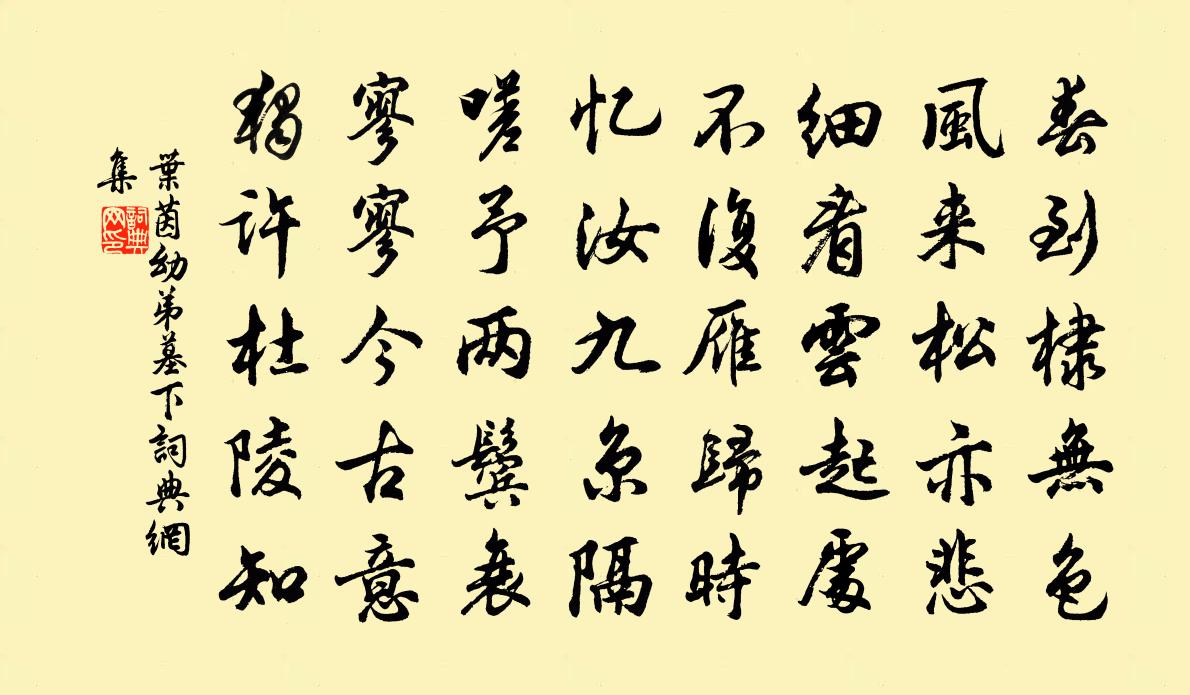 春到棣無色
風来松亦悲
細看雲起處
不復雁歸時
忆汝九原隔
嗟予两鬓衰
寥寥今古意
獨許杜陵知
葉茵幼弟墓下詞典網
集
詞典
网印